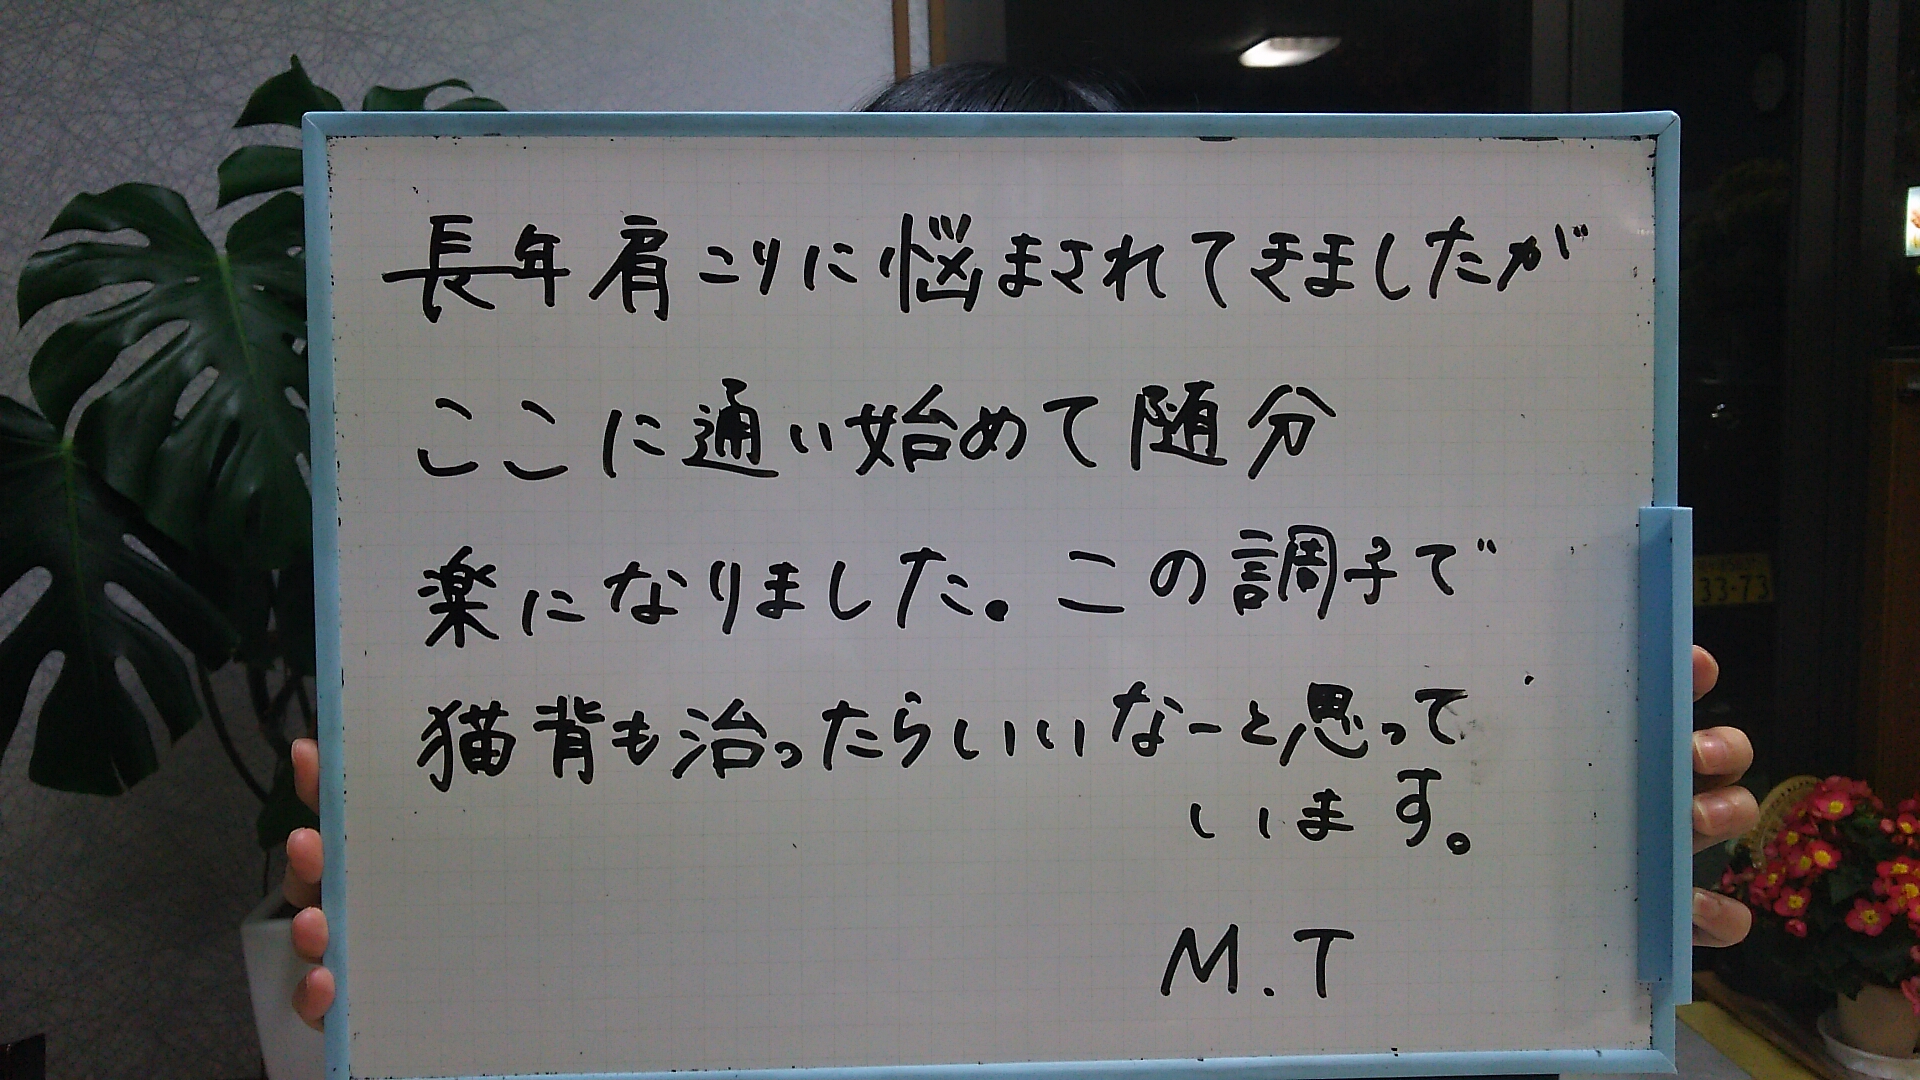 長年肩こりに悩まされてきましたが
ここに通い始めて随分
楽になりました。この調子で
猫背も治ったらいいなーと思って
います。
M.T
33-73